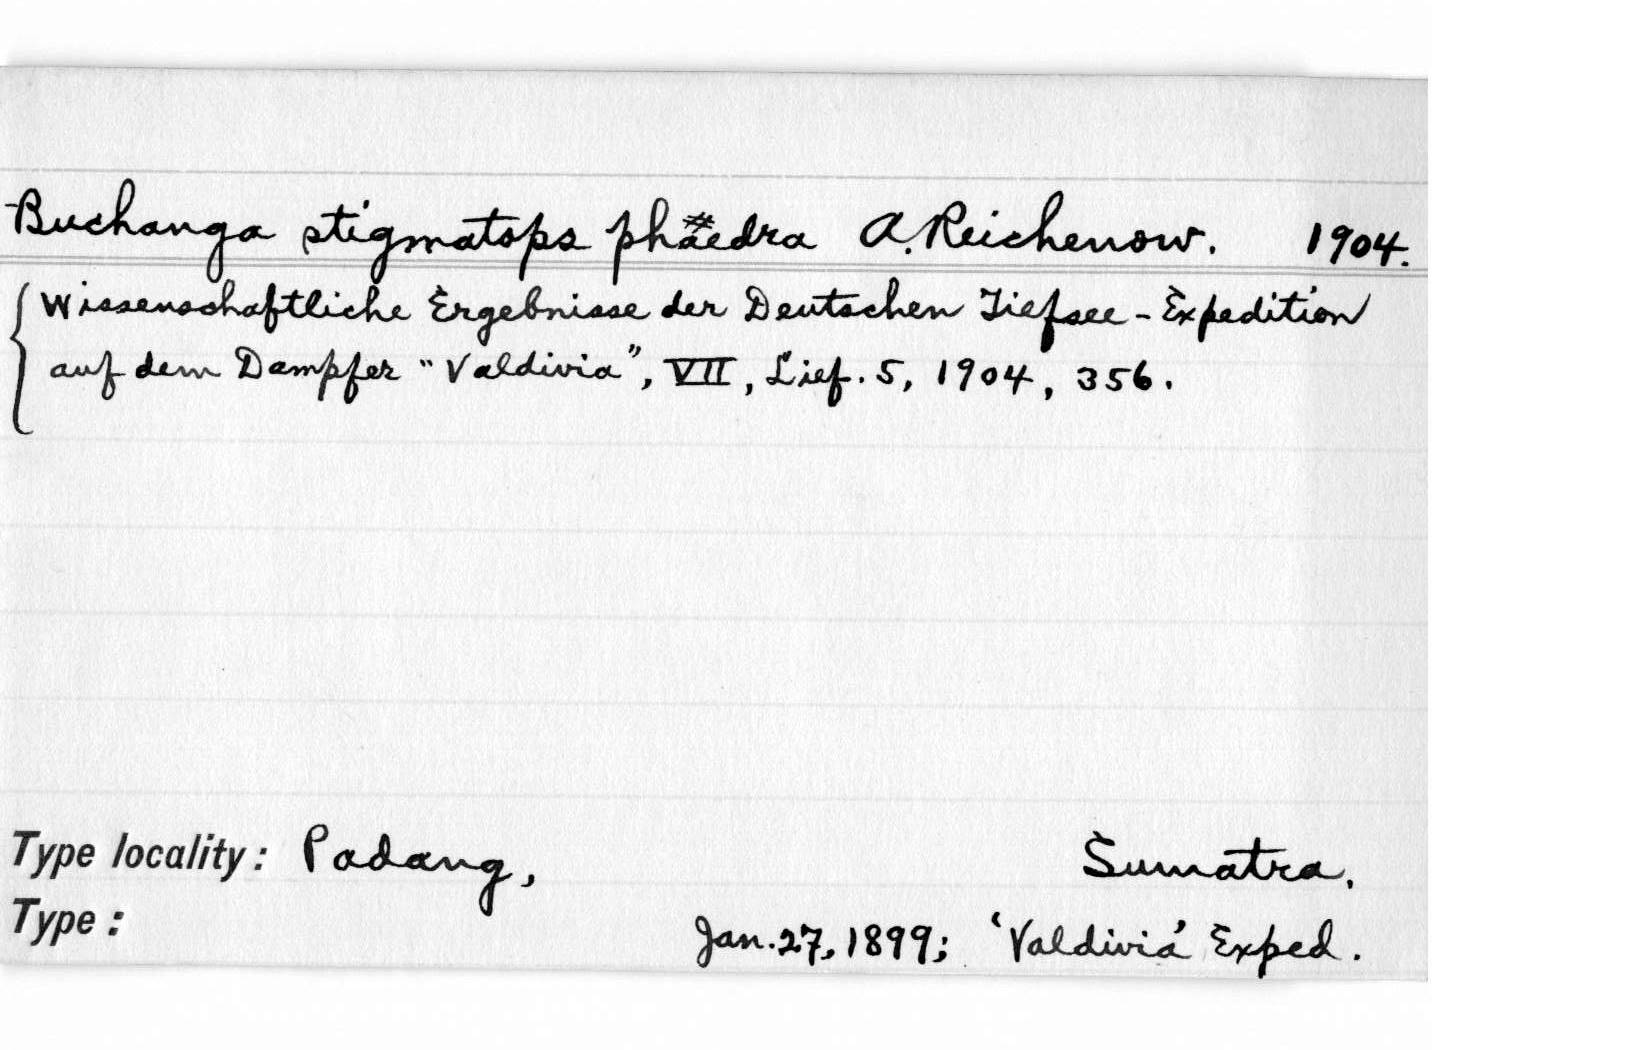 Buchanga stigmatops phaedra A. Reichenow. 1904.
Wissenschaftliche Ergebnisse der Deutschen Tiefsee-Expedition
auf dem Dampfer "Valdivia", VII, Lief. 5, 1904, 356.
Type locality: Padang, Sumatra.
Type: Jan. 27, 1899; 'Valdivia' Exped.